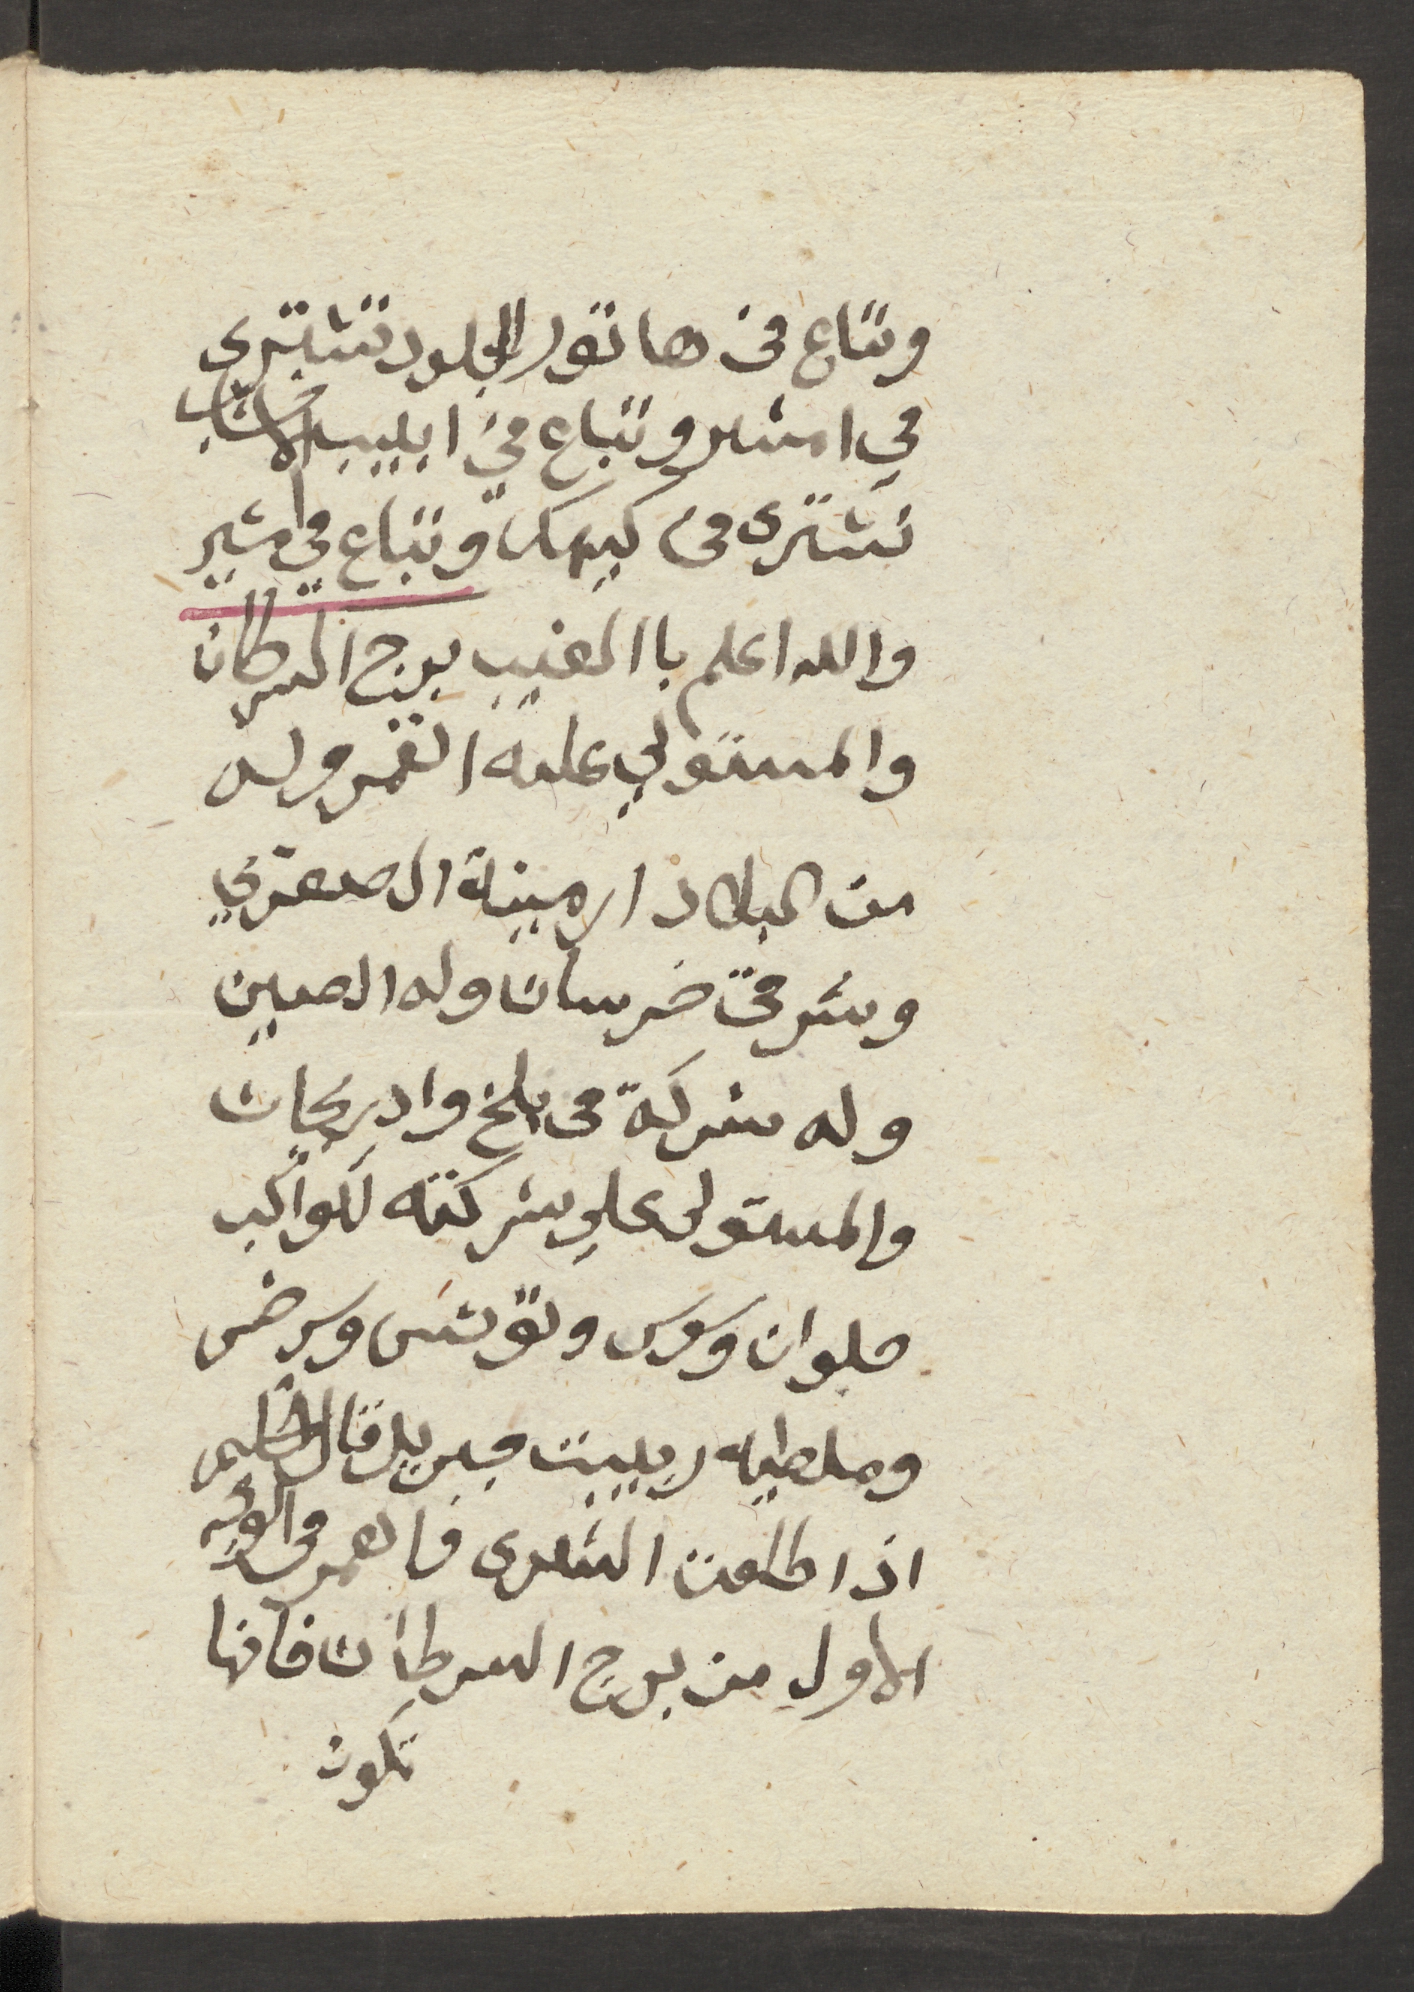 وتباع في هاتور الجلود تشترى
في امشير وتباع في ابيب الاخشاب
تشترى في كيهك وتباع في امشير
والله اعلم باالغيب برج السرطان
والمستولي عليه القمر وله
من البلاد ارمينة الصغري
وشرقي خرسان وله الصين
وله شركة في بلخ وادربجان
والمستولى علي شركته لكواكب
حلوان وسوس وتوتس وسرخس
وملطيه ربيبت جبريل قال الحكيم
اذا طلعت الشعرى والقمر في الوجه
الاول من برج السرطان فانها
تكون